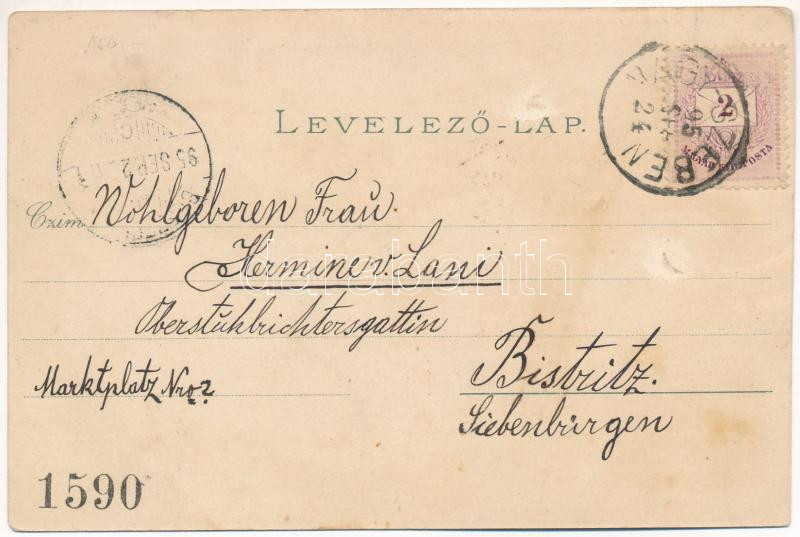 150
LEVELEZŐ-LAP.
NAGY-SZEBEN
95
SEP.
24
2
MAGYAR KIR. POSTA
95 SEP. 2
Czím
Wohlgeboren Frau
Hermine v. Lani
Oberstuhlrichtersgattin
Marktplatz Nro 2
Bistritz.
Siebenbürgen
darabanth
1590